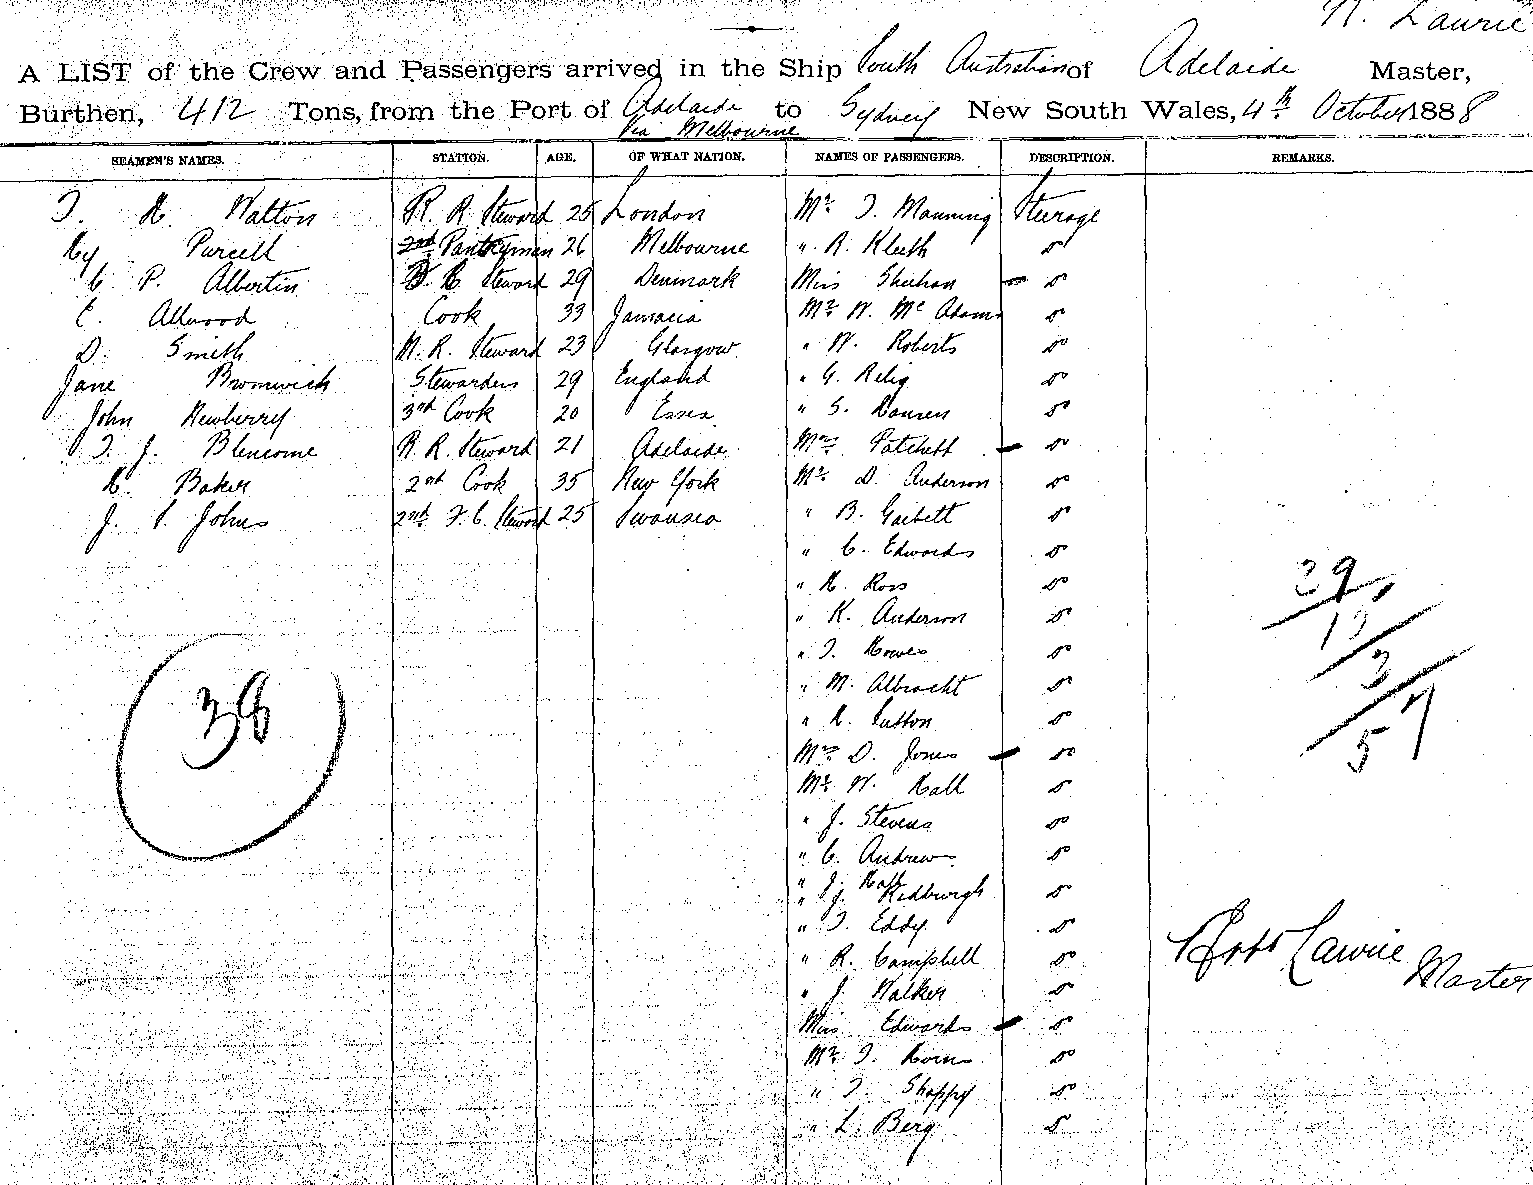 R. Lawrie
A LIST of the Crew and Passengers arrived in the Ship South Australian of Adelaide Master,
Burthen, 412 Tons, from the Port of Adelaide to Sydney New South Wales, 4th October 1888
Via Melbourne
SEAMEN'S NAMES. STATION. AGE. OF WHAT NATION. NAMES OF PASSENGERS. DESCRIPTION. REMARKS.
T. H. Walton R. R. Steward 25 London Mr T. Manning Steerage
Hy Purcell 2nd Pantryman 26 Melbourne " R. do
C. P. Albertin R. Steward 29 Denmark Miss Sheehan do
E. Allwood Cook 33 Jamacia Mr W. Mc Adams do
D. Smith M. R. Steward 23 Glasgow " W. Roberts do
Jane Bromwich Stewardess 29 England " G. Relig do
John Newberry 3rd Cook 20 Essex " S. Hansen do
T. J. Blencowe R. R. Steward 21 Adelaide Mrs Patchett do
H. Baker 2nd Cook 35 New York Mr D. Anderson do
J. S. Johns 2nd F. C. Steward 25 Swansea " B. Garbett do
" C. Edwards do
" H. Ross do
" K. Anderson do
" T. Howes do
" M. Albracht do
" H. Sutton do
Mrs D. Jones do
Mr W. Hall do
" J. Stevens do
" C. Andrews do
" J. Hall
" J. Kedburgh do
" T. Eddy do
" R. Campbell do
" J. Walker do
Miss Edwards do
Mr T. Horns do
" T. Shoppy do
" L. Berg do
38
39
13
3
57
Robt Lawrie Master